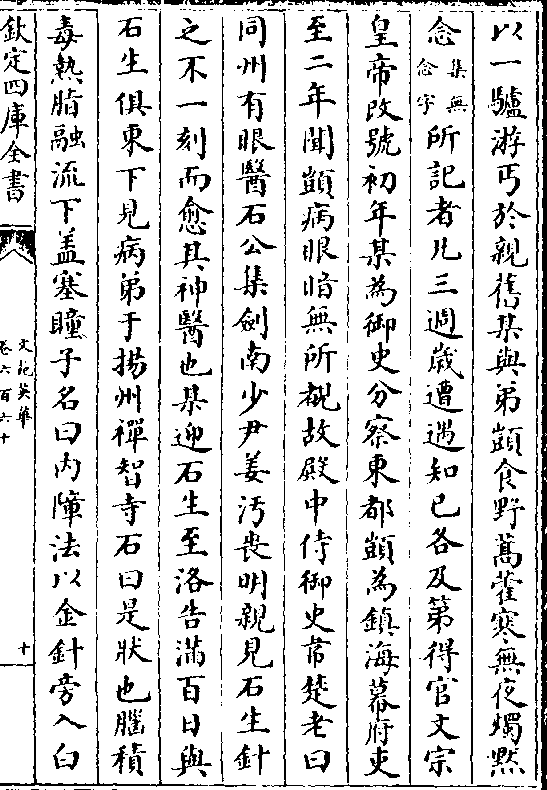 以一驢游丐於親舊某與弟顗食野蒿藿寒無夜燭黙
念集無念字所記者凡三週歳遭遇知已各及第得官文宗
皇帝改號初年某為御史分察東都顗為鎮海幕府吏
至二年聞顗病眼暗無所覩故殿中侍御史常楚老曰
同州有眼醫石公集劍南少尹姜沔喪明親見石生針
之不一刻而愈其神醫也某迎石生至洛告滿百日與
石生俱東下見病弟于揚州禪智寺石曰是狀也腦積
毒熱脂融流下蓋塞瞳子名曰内障法以金針旁入白
欽定四庫全書
文苑英華
卷六百六十
十